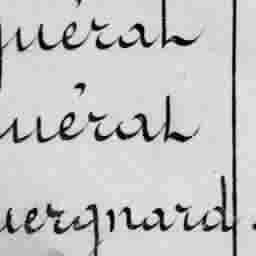 quéral
uéral
uergnard